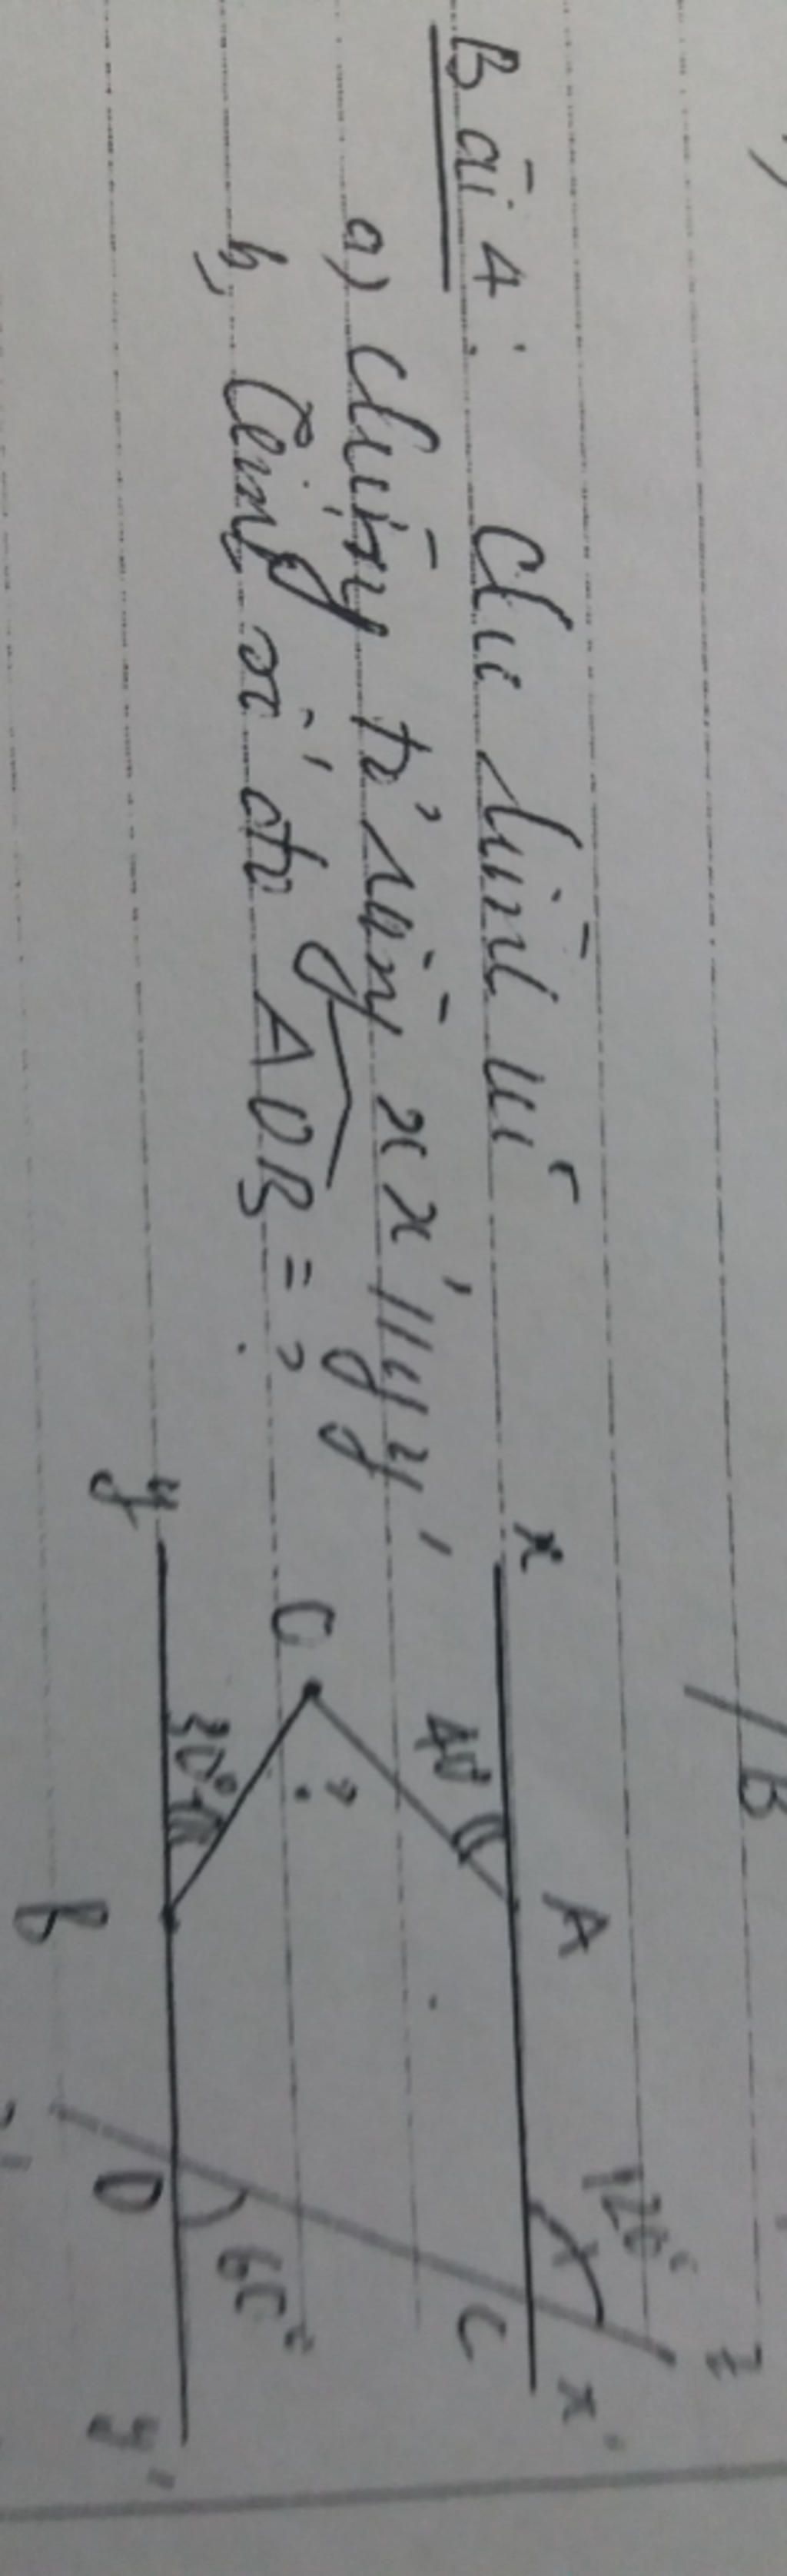 Bài 4: Cho hình vẽ
a) chứng tỏ rằng xx' // yy'
b, Tính số đo AOB = ?
x A 120° z
40° C x'
O ?
30° 60°
y B D y'
B